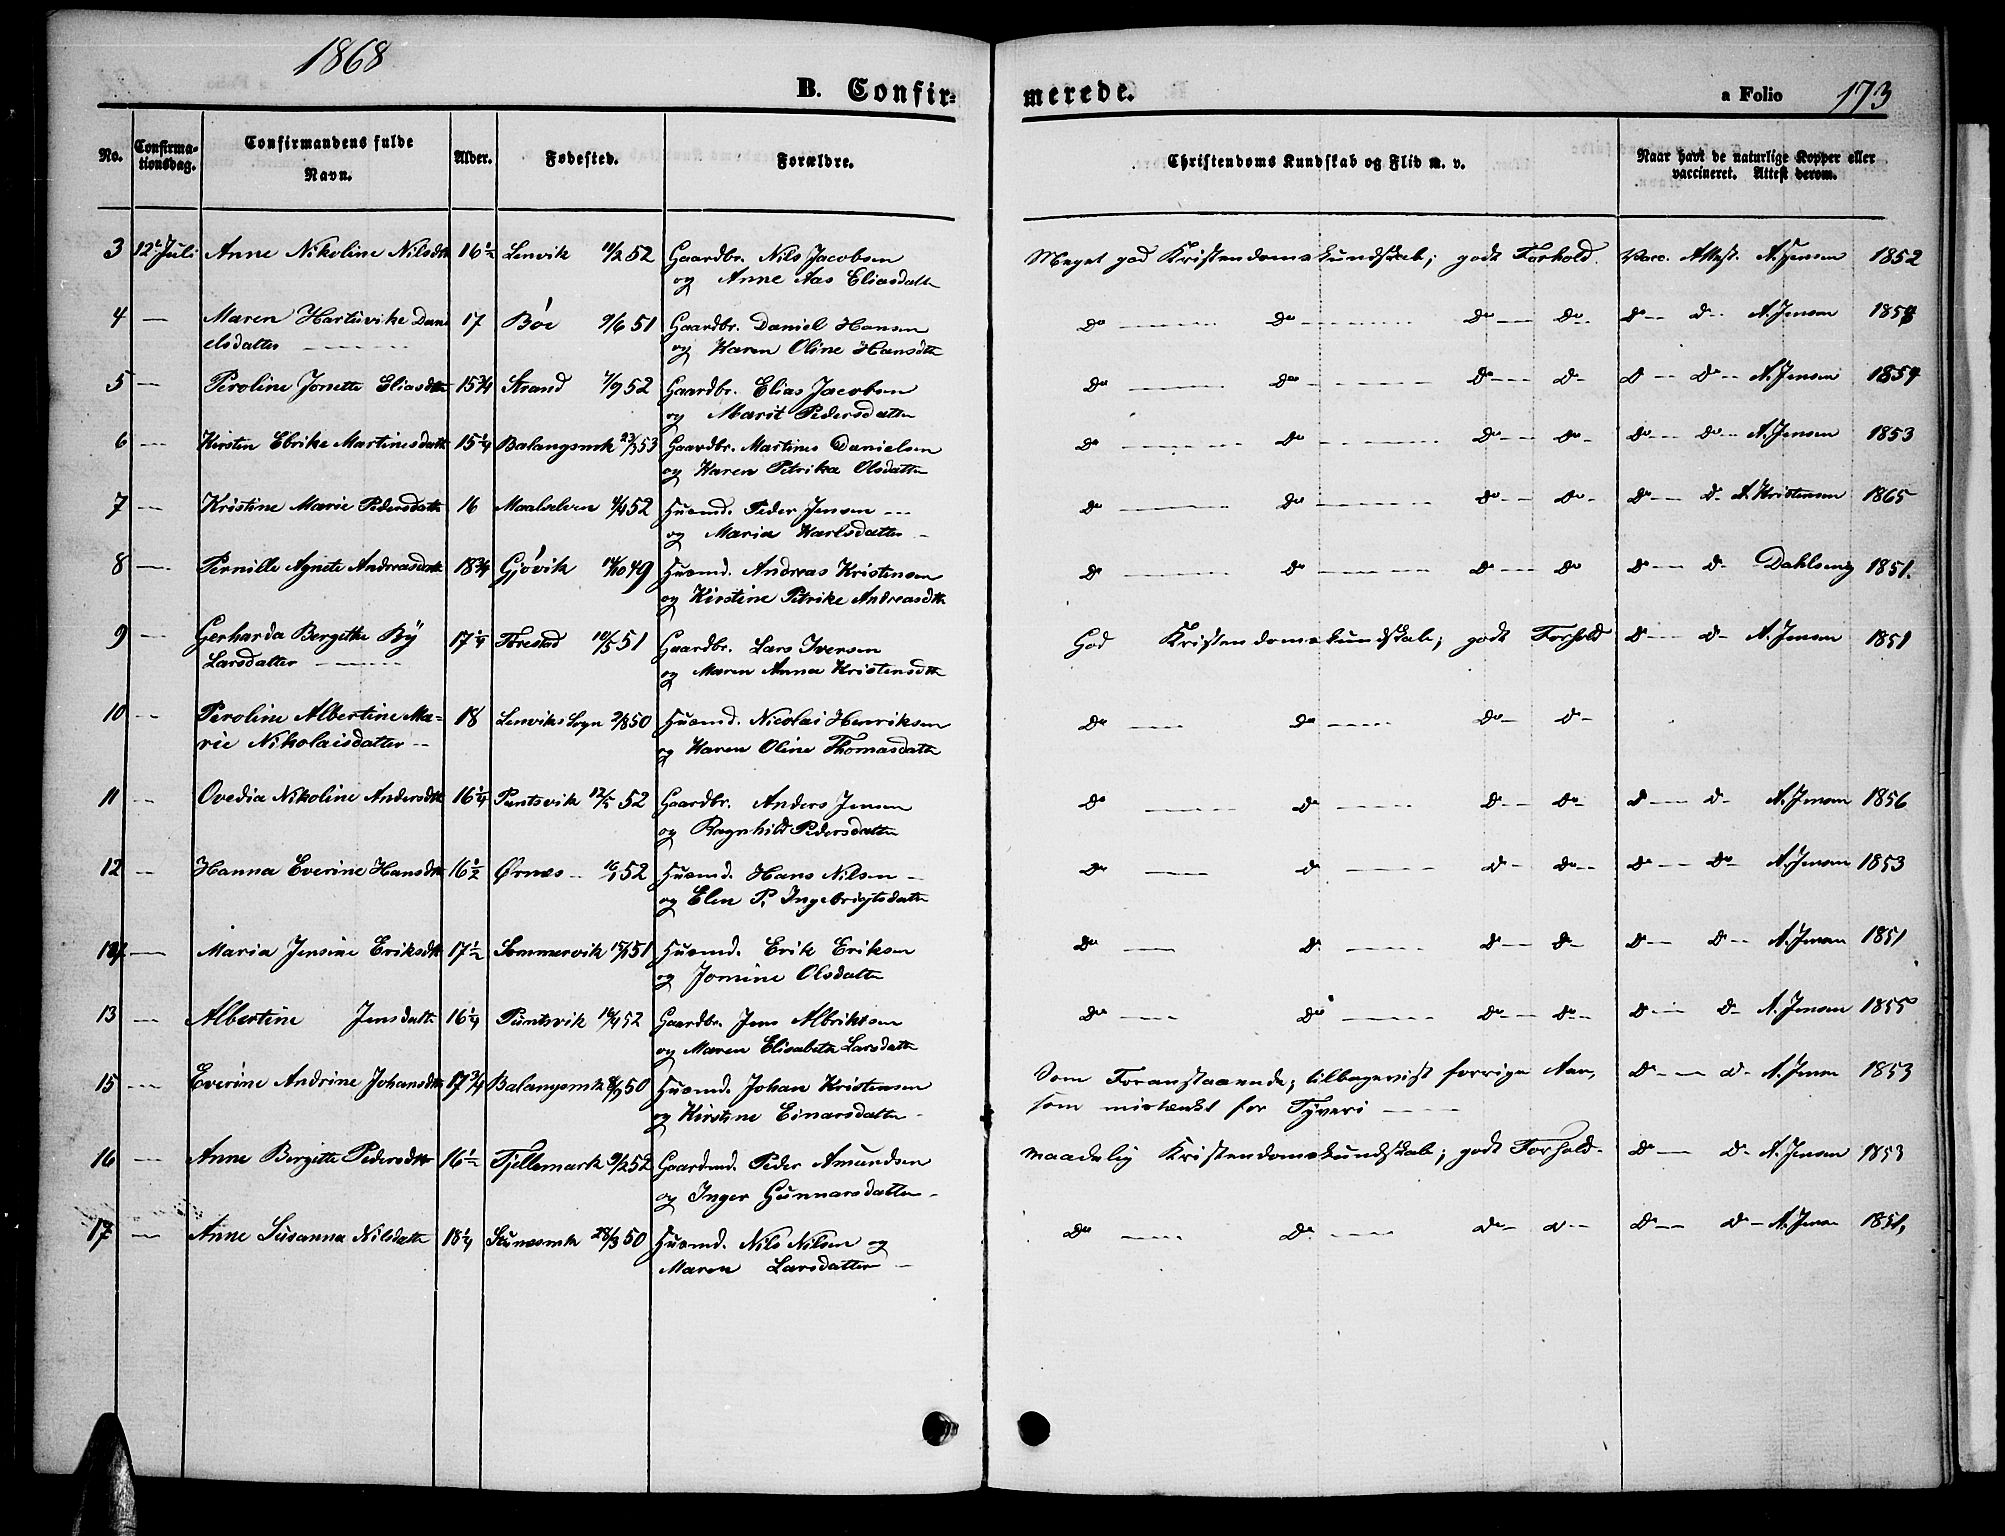 1868
B. Confir=
merede.
a Folio 173
No.
Confirma-
tionsdag.
Confirmandens fulde
Navn.
Alder.
Fødested.
Forældre.
Christendoms Kundskab og Flid m. v.
Naar havt de naturlige Kopper eller
vaccineret. Attest derom.
3 12te Juli Anne Nikoline Nilsdtr 16½ Lenvik 11/2 52 Gaardbr. Nils Jacobsen Meget god Kristendomskundskab; godt Forhold. Vacc. Attest. A. Jensen 1852
og Anne Aas Eliasdattr
4 — Maren Hartuvike Dani 17 Bøe 9/6 51 Gaardbr. Daniel Hansen do do do do do d. A. Jensen
elsdatter og Karen Oline Hansdtr
5 — Peroline Jonette Eliasdtr 15¾ Strand 7/9 52 Gaardbr. Elias Jacobsen do do do d. d do A. Jensen 1854
og Marit Pedersdatter
6 — Kirsten Ebrike Martinesdattr 15¼ Balangsmk 53 Gaardbr. Martines Danielsen do do do do do do A. Jensen 1853
og Karen Petrika Olsdatter
7 — Kristine Marie Pedersdattr 16 Maalselven 4/4 52 Husmd. Peder Jensen do do do do do d. A. Kristensen 1865
og Maria Karlsdatter
8 — Pernille Agnete Andreasdattr 18¾ Gjøvik 14/10 49 Husmd. Andreas Kristensen do do do do do d. Dahlseng 1851.
og Kirstine Petrike Andreasdtr
9 — Gerharda Bergitha By 17¼ Forestad 10/5 51 Gaardbr. Lars Iversen God Kristendomskundskab; godt Forhold do d. A. Jensen 1851
Larsdatter og Maren Anna Kristensdtr
10 — Peroline Albertine Ma= 18 Lenviks Sogn 2/8 50 Husmd. Nicolai Henriksen do do do d.
rie Nikolaisdatter og Karen Oline Thomasdattr
11 — Ovedia Nikoline Andersdtr 16¼ Puntsvik 12/5 52 Gaardbr. Anders Jensen do do d. do d d. A. Jensen 1856
og Ragnhild Pedersdatter
12 — Hanna Everine Hansdtr 16½ Ørnes 52 Husmd. Hans Nilsen do d d do do do A. Jensen 1853
og Elen P. Ingebrigtsdattr
— Maria Jensine Eriksdtr 17½ Sommervik 51 Husmd. Erik Eriksen do d. d d do d. A. Jensen 1851
og Jonine Olsdatter
13 — Albertine Jensdattr 16¼ Puntsvik 16/4 52 Gaardbr. Jens Albriktsen do do do do do d. A. Jensen 1855
og Maren Elisabeth Larsdattr
15 — Everine Andrine Johansdtr 17¾ Balangsmk 8/9 50 Husmd. Johan Kristensen Som Foranstaaende; tilbagevist forrige Aar, do d. A. Jensen 1853
og Kirstine Einarsdatter som mistænkt for Tyveri
16 — Anne Bergitte Pedersdtr 16½ Tjellemark 9/2 52 Gaardmd. Peder Amundsen maadelig Kristendomskundskab; godt Forhold. do d. A. Jensen 1853
og Inger Gunnarsdatter
17 — Anne Susanna Nilsdattr 18¼ 28/3 50 Husmd. Nils Nilsen og do do do d do d. A. Jensen 1851,
Maren Larsdatter